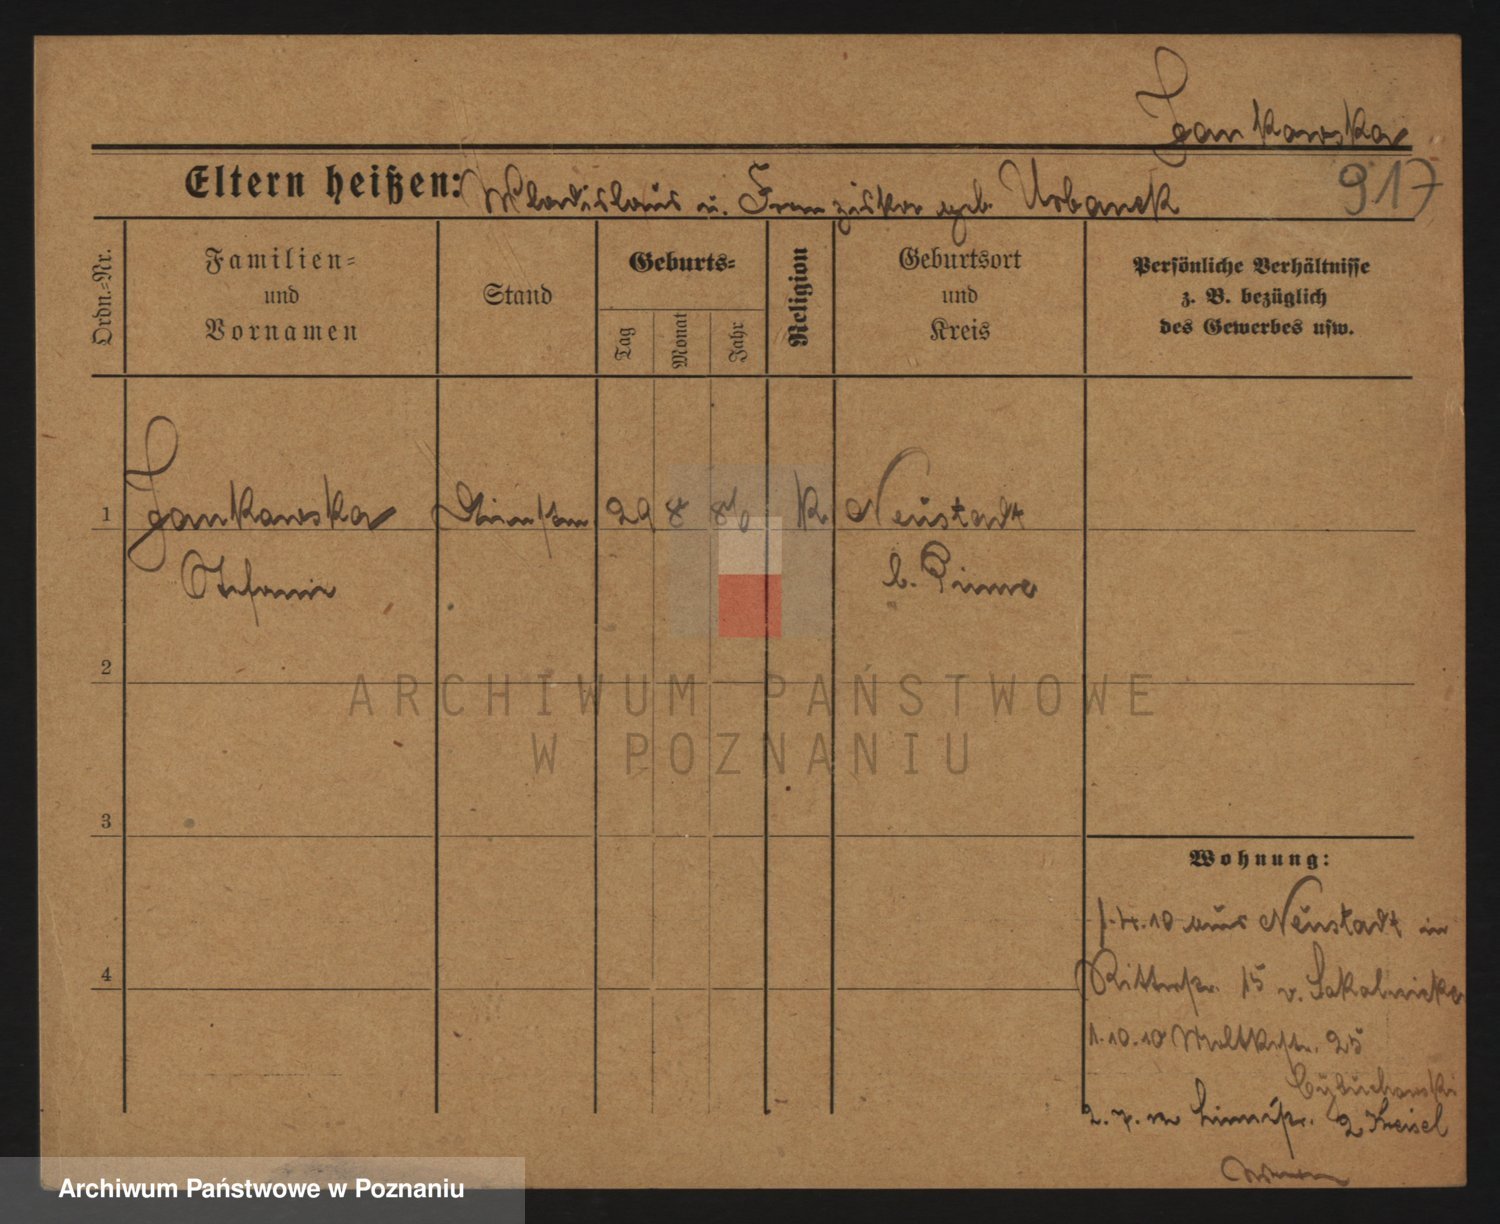 Jankowska
Eltern heißen: Wladislaus u. Franziska geb. Urbanek
917
Ordn.-Nr.
Familien-
und
Vornamen
Stand
Geburts-
Tag
Monat
Jahr
Religion
Geburtsort
und
Kreis
Persönliche Verhältnisse
z. B. bezüglich
des Gewerbes usw.
1
Jankowska
Stefanie
29 8 86
K
Neustadt
b. Pinne
2
3
4
ARCHIWUM PAŃSTWOWE
W POZNANIU
Wohnung:
1.4.10 aus Neustadt in
Ritterstr. 15 v.
1.10.10 Moltkestr. 25
Archiwum Państwowe w Poznaniu